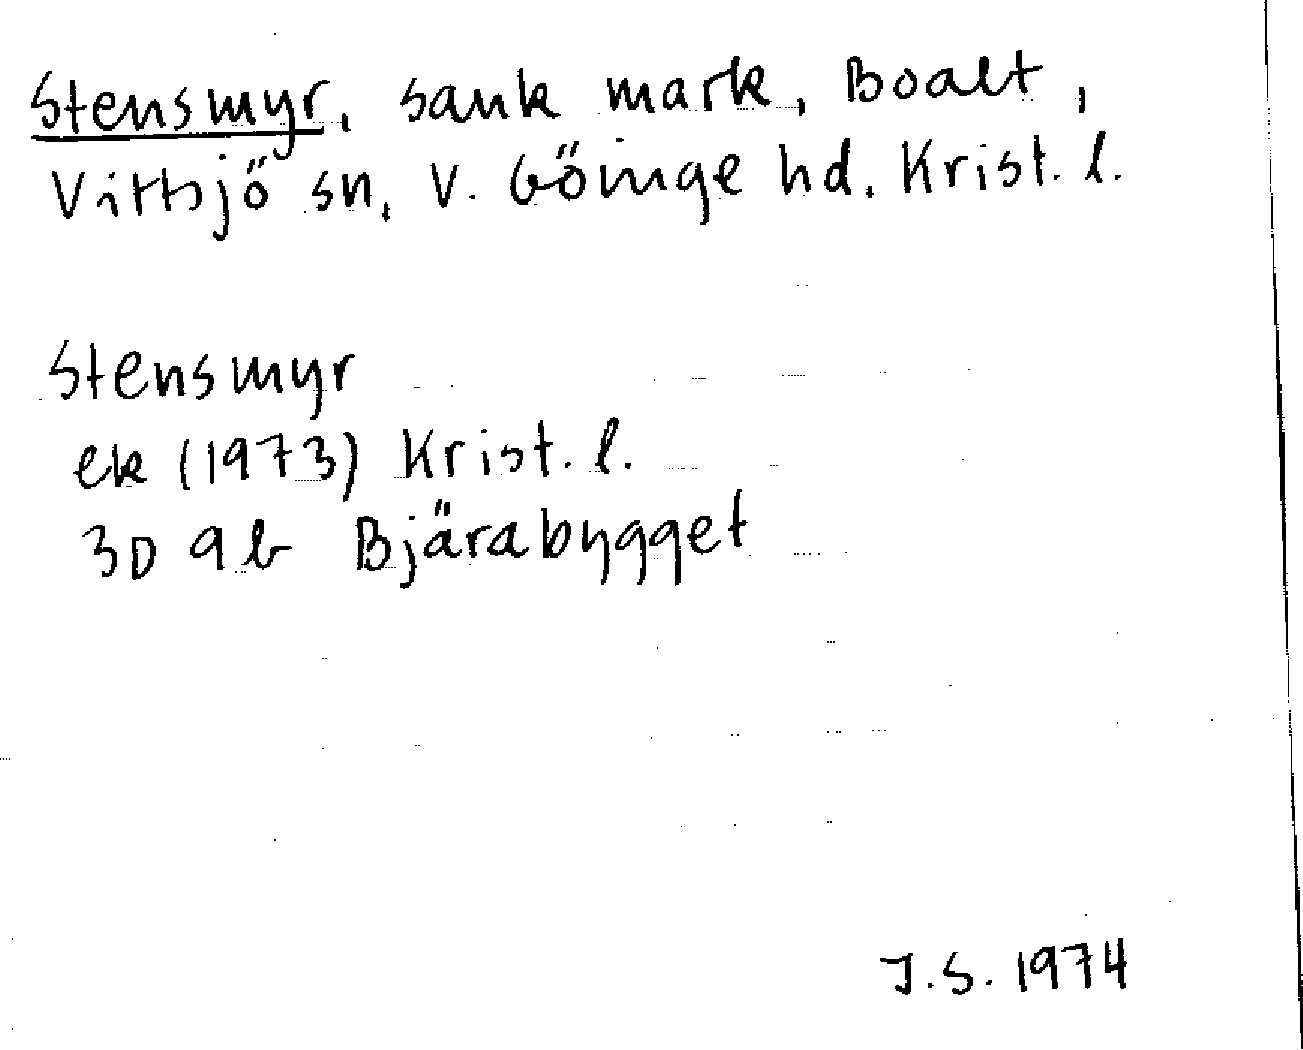 Stensmyr, sank mark, Boalt,
Vittsjö sn, V. Göinge hd. Krist. l.
Stensmyr
ek (1973) Krist. l.
3D 9b Bjärabygget
J.S. 1974